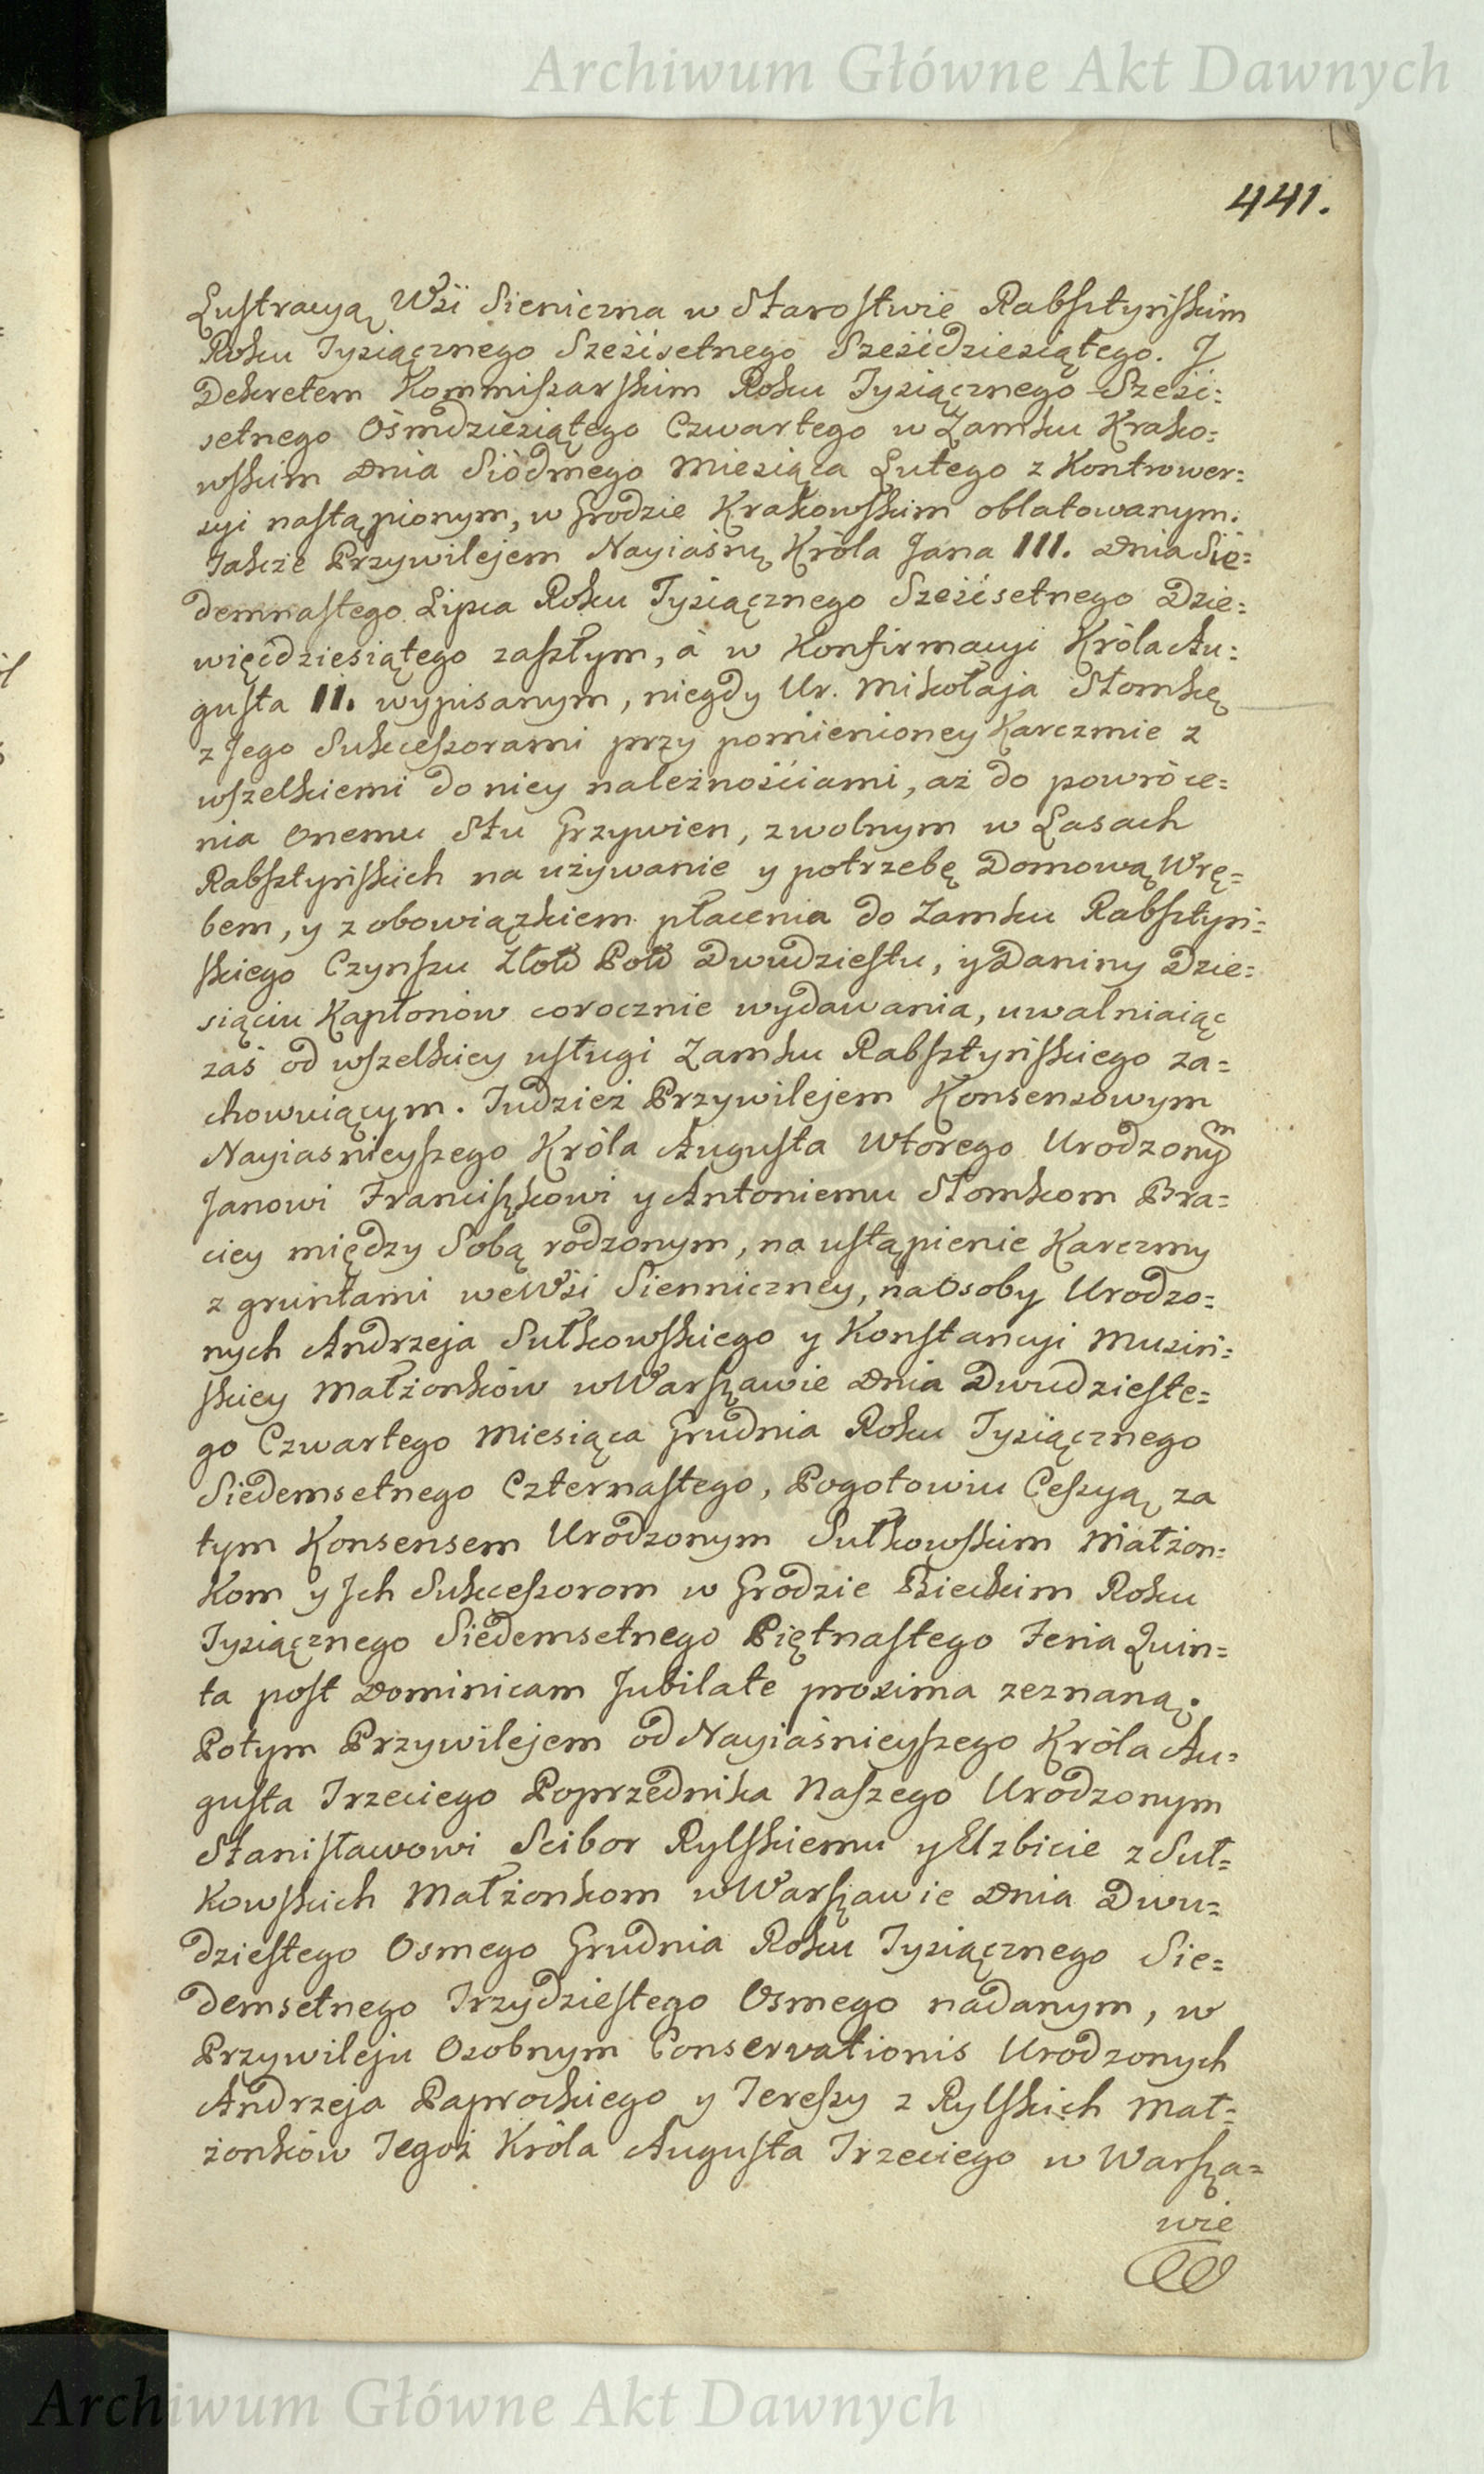 Archiwum Główne Akt Dawnych
441.
Lustracyą Wśi Sieniczna w Starostwie Rabsztyńskim
Roku Tysiącznego Sześćsetnego Sześćdziesiątego. J
Dekretem Kommiszarskim Roku Tysiącznego Sześć=
setnego Ośmdziesiątego Czwartego w Zamku Krako=
wskim Dnia Siódmego Miesiąca Lutego z Kontrower=
syi nastąpionym, w Grodzie Krakowskim oblatowanym.
Takze Przywilejem Nayiaśnę Króla Jana III. Dnia Sie=
demnastego Lipca Roku Tysiącznego Sześćsetnego Dzie=
więćdziesiątego zaszłym, à w Konfirmacyi Króla Au=
gusta II. wypisanym, niegdy Ur. Mikołaja Słomkę
z Jego Sukceszorami przy pomienioney Karczmie z
wszelkiemi do niey należnościami, aż do powróce=
nia onemu Stu Grzywien, z wolnym w Lasach
Rabsztyńskich na używanie y potrzebę Domową Wrę=
bem, y z obowiązkiem płacenia do Zamku Rabsztyń=
skiego Czynszu Złotd Pold Dwudziestu, y Daniny Dzie=
siąciu Kapłonów corocznie wydawania, uwalniaiąc
zaś od wszelkiey usługi Zamku Rabsztyńskiego za=
chowuiącym. Tudzież Przywilejem Konsensowym
Nayiasnieyszego Króla Augusta Wtorego Urodzonym
Janowi Franciszkowi y Antoniemu Słomkom Bra=
ciey między Sobą rodzonym, na ustąpienie Karczmy
z gruntami we Wśi Sienniczney, na Osoby Urodzo=
nych Andrzeja Sułkowskiego y Konstancyi Musiń=
skiey Małżonków w Warszawie Dnia Dwudzieste=
go Czwartego Miesiąca Grudnia Roku Tysiącznego
Siedemsetnego Czternastego, Pogotowiu Ceszyą za
tym Konsensem Urodzonym Sułkowskim Małżon=
Kom y Jch Sukceszorom w Grodzie Bieckim Roku
Tysiącznego Siedemsetnego Piętnastego Feria Quin=
ta post Dominicam Jubilate proxima zeznaną.
Potym Przywilejem od Nayiaśnieyszego Króla Au=
gusta Trzeciego Poprzednika Naszego Urodzonym
Stanisławowi Scibor Rylskiemu y Elzbicie z Suł=
Kowskich Małżonkom w Warszawie Dnia Dwu=
dziestego Osmego Grudnia Roku Tysiącznego Sie=
demsetnego Trzydziestego Osmego nadanym, w
Przywileju Osobnym Conservationis Urodzonych
Andrzeja Paprockiego y Tereszy z Rylskich Mał=
żonków Tegoż Króla Augusta Trzeciego w Warsza=
wie
Archiwum Główne Akt Dawnych